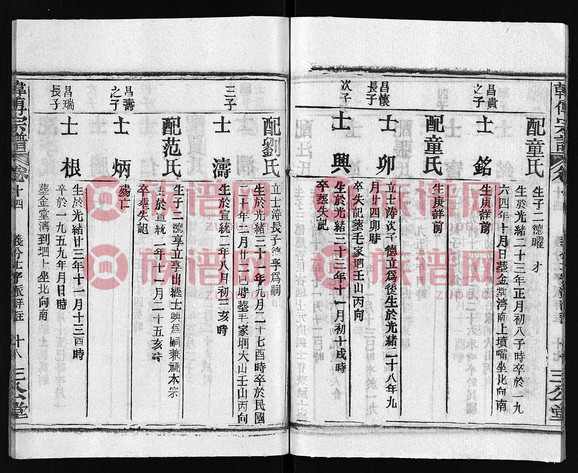 韓傅宗譜 卷十四
三公堂
配童氏
生子二德曜 才
生於光緒二十三年正月初八子時卒於一九
六四年十月日葬金棠灣南上墳喻坐北向南
昌貴
之子
士銘
生庚詳前
配童氏
生庚詳前
昌懷
長子
士卯
立士濤次子德立爲後生於光緒二十八年九
月廿四卯時
卒失記葬毛家垌大山壬山丙向
次子
士興
生於光緒三十三年十月初十戌時
卒葬失記
配劉氏
立士濤長子德孚爲嗣
生於光緒三十一年九月二十七酉時卒於民國
二十年二月廿三日卯時葬毛家垌大山壬山丙向
三子
士濤
生於宣統二年八月初三亥時
配范氏
生子二德孚立孚出繼士映爲嗣兼祧本宗
生於宣統一年十一月二十五亥時
卒葬失記
昌壽
之子
士炳
殘亡
昌瑞
長子
士根
生於光緒廿三年十一月十三日酉時
卒於一九五九年月日時
葬金棠灣到塆上坐北向南
韓傅宗譜 卷十四
十八 三公堂
族谱网
zupu.cn
族谱网
zupu.cn